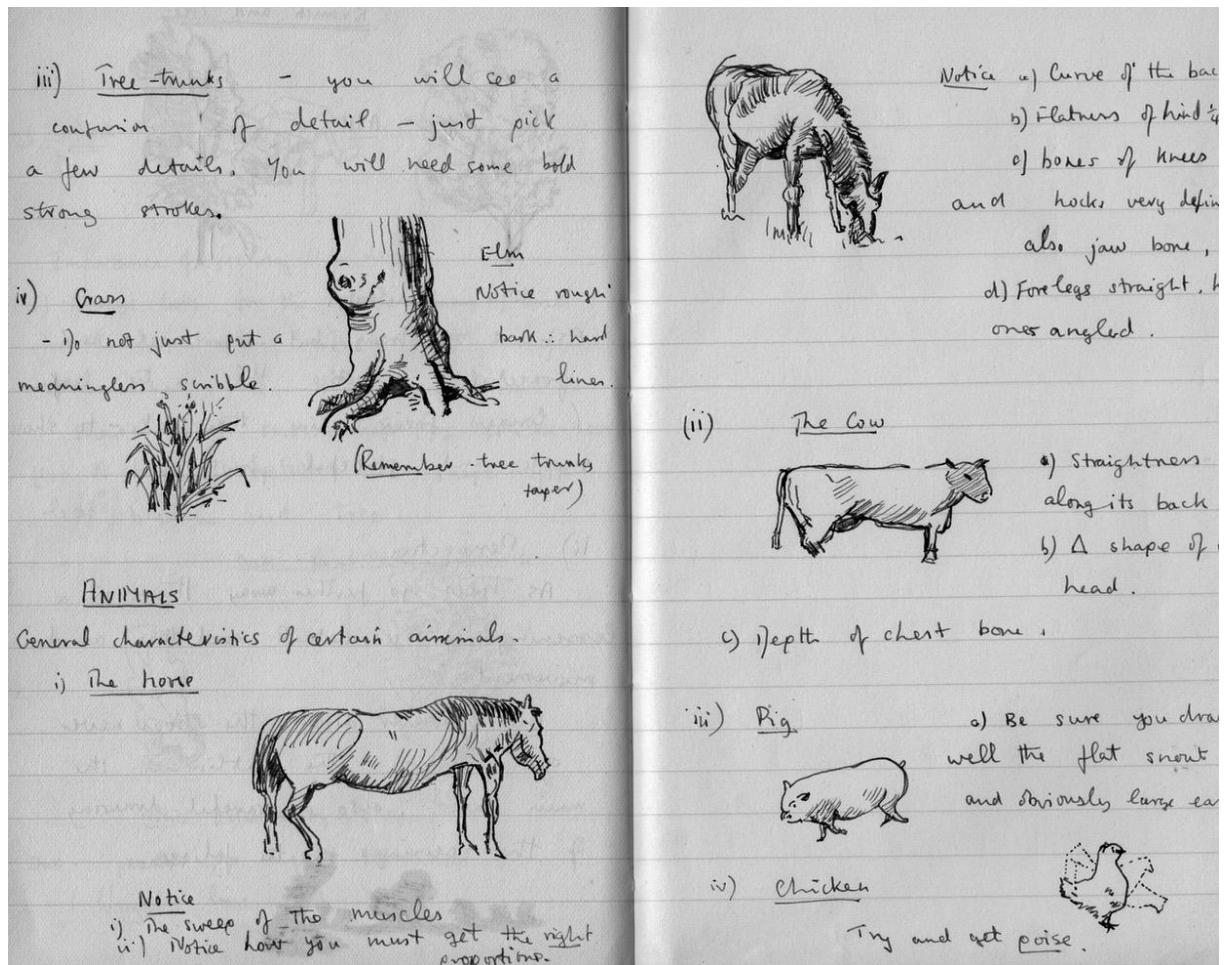 iii) Tree-trunks - you will see a
confusion of detail - just pick
a few details. You will need some bold
strong strokes.
Elm
Notice rough
bark ∴ hard
lines.
iv) Grass
- Do not just put a
meaningless scribble.
(Remember - tree trunks
taper)
ANIMALS
General characteristics of certain animals.
i) The horse
Notice
i) The sweep of the muscles
ii) Notice how you must get the right
proportions.
Notice a) Curve of the bac
b) Flatness of hind ¼
c) bones of knees
and hocks very defin
also jaw bone,
d) Forelegs straight, h
ones angled.
(ii) The Cow
a) Straightness
along its back
b) Δ shape of
head.
c) Depth of chest bone.
iii) Pig
a) Be sure you dra
well the flat snout
and obviously large ea
iv) Chicken
Try and get poise.